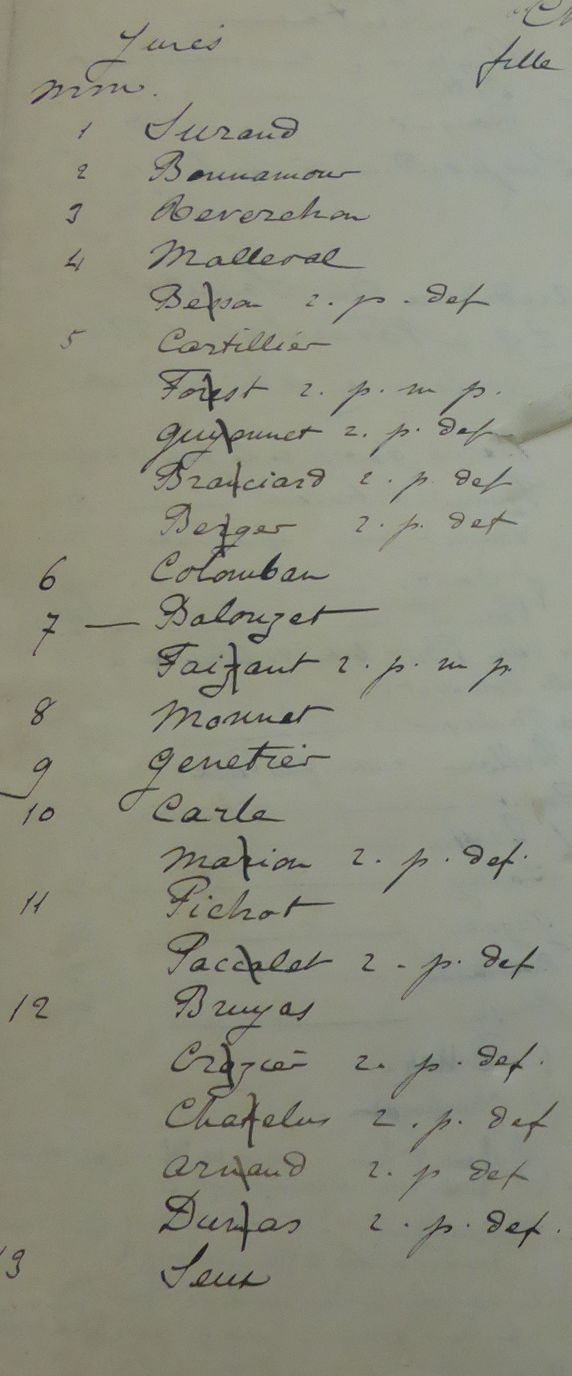 Jurés
fille
MM.
1 Surand
2 Bonnamour
3 Reverchon
4 Malleval
Besson r. p. def
5 Cartillier
Forest r. p. m p.
Guyonnet r. p. def
Branciard r. p. def
Berger r. p. def
6 Colomban
7 — Balouzet
Faizant r. p. m p.
8 Monnet
9 Genetier
10 Carle
Marion r. p. def.
11 Pichot
Paccalet r. p. def
12 Bruyas
Crozier r. p. def.
Chapelus r. p. def
Arnaud r. p def
Dumas r. p. def.
13 Seux